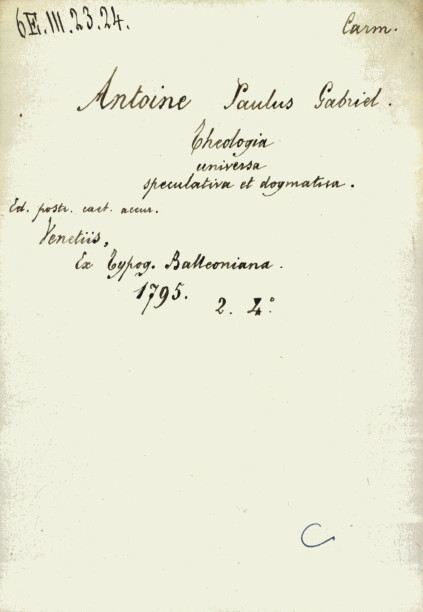 6E.III.23.24.
Carm.
Antoine Paulus Gabriel.
Theologia
universa
speculativa et dogmatica.
Ed. postr. cact. accur.
Venetiis,
Ex Typog. Balleoniana.
1795. 2. 4°
C